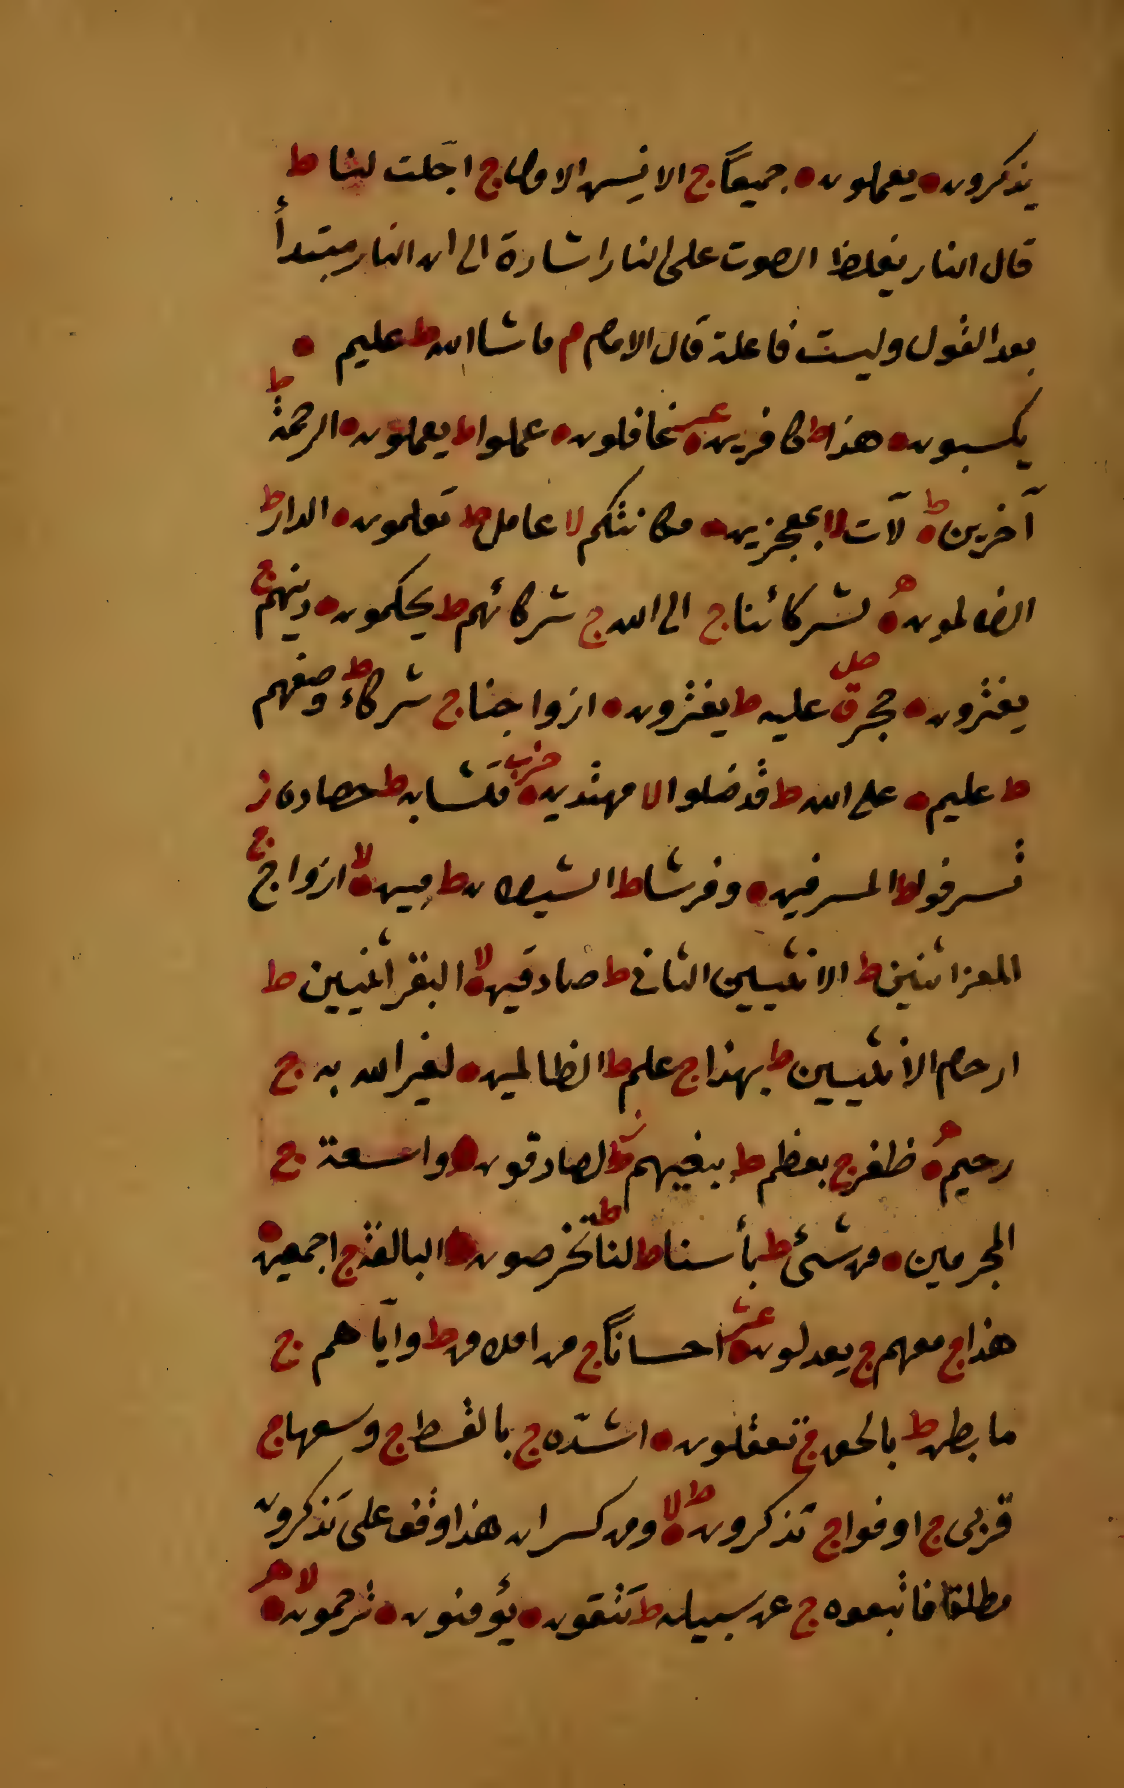 يذكرون • يعملون • جميعاً ج الانس الانس ج اجّلت لنا ط
قال النار يغلظ الصوت على النار اشارة الى ان النار مبتدأ
بعد القول وليست فاعلة قال الامام م ما شا الله ط عليم •
يكسبون • هذا ط كافرين • عشر غافلون • عملوا ط يعملون • الرحمة ط
آخرين ط • لآت لا بمعجزين • مكانتكم لا عامل ط تعلمون • الدار ط
الظالمون • ه لشركائنا ج الى الله ج شركائهم ط يحكمون • دينهم ج
يفترون • حجر ق صل عليه ط يفترون • ازواجنا ج شركاء ط وصفهم
ط عليم • على الله ط قد ضلوا لا مهتدين • حزب متشابه ط حصاده ز
تسرفوا ط المسرفين • وفرشا ط الشيطان ط مبين • لا ازواج ج
المعز اثنين ط الانثيين الثاني ط صادقين • لا البقر اثنين ط
ارحام الانثيين ط بهذا ج علم ط الظالمين • لغير الله به ج
رحيم • ه ظفر ج بعظم ط ببغيهم ط ز لصادقون • واسعة ج
المجرمين • من شئ ط بأسنا ط لنا ط تخرصون • البالغة ج اجمعين •
هذا ج معهم ج يعدلون • عشر احساناً ج من املاق ط وايّاهم ج
ما بطن ط بالحق ج تعقلون • اشدّه ج بالقسط ج وسعها ج
قربى ج اوفوا ج تذكرون ط • لا ومن كسر ان هذا وقف على تذكرون
مطلقا فاتبعوه ج عن سبيله ط تتقون • يؤمنون • ترحمون • لا ه